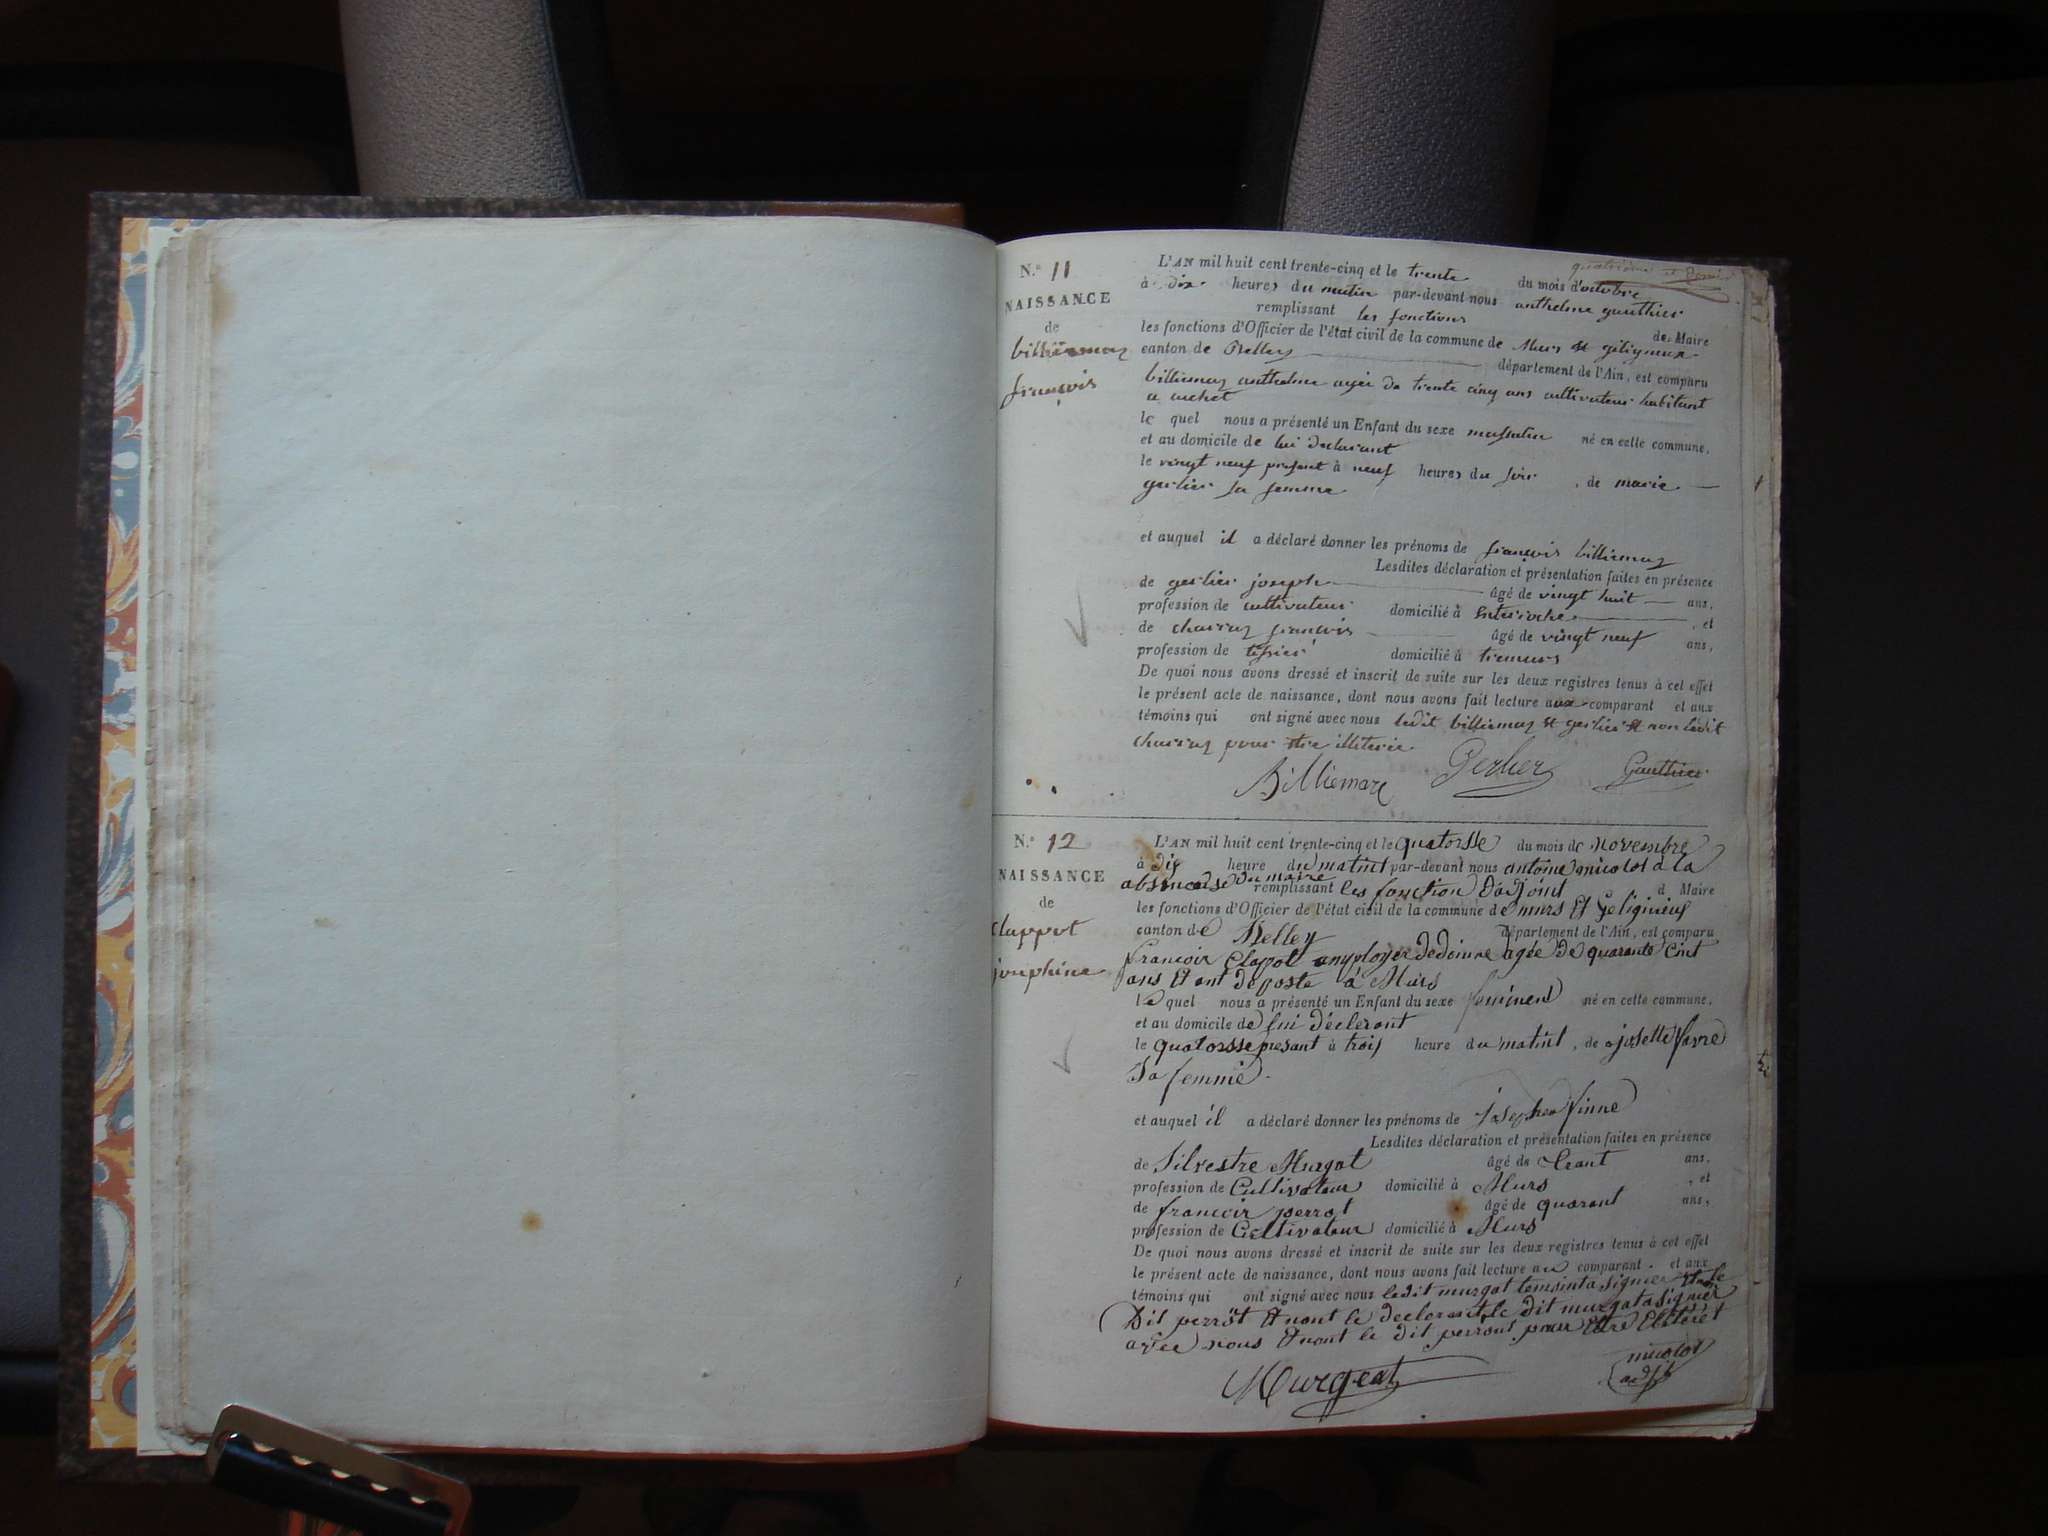 quatrième et
N.° 11
NAISSANCE
de
billiemaz
françois
L'AN mil huit cent trente-cinq et le trente du mois d'octobre
à dix heures du matin par-devant nous anthelme gauthier
remplissant les fonctions de Maire
les fonctions d'Officier de l'état civil de la commune de Murs et géligneux
canton de Belley département de l'Ain, est comparu
billiemaz anthelme agée de trente cinq ans cultivateur habitant
a
le quel nous a présenté un Enfant du sexe massculin né en cette commune,
et au domicile de lui declarant
le vingt neuf présent à neuf heures du soir, de marie
gerlier sa femme
et auquel il a déclaré donner les prénoms de françois billiemaz
Lesdites déclaration et présentation faites en présence
de gerlier joseph âgé de vingt huit ans,
profession de cultivateur domicilié à Entreroche, et
de charray françois âgé de vingt neuf ans,
profession de tissier domicilié à tremurs
De quoi nous avons dressé et inscrit de suite sur les deux registres tenus à cet effet
le présent acte de naissance, dont nous avons fait lecture aux comparant et aux
témoins qui ont signé avec nous ledit billiemaz et gerlier et non ledit
charray pour etre illiterée
Billiemaz Gerlier Gauthier
N.° 12
NAISSANCE
de
clappot
josephine
L'AN mil huit cent trente-cinq et le quatorsse du mois de novembre
à dix heure du matint par-devant nous antoine nicolot a la
absence du maire remplissant les fonction Dadjoint d Maire
les fonctions d'Officier de l'état civil de la commune de murs Et gelignieux
canton de Belley département de l'Ain, est comparu
francoir Clapot amployer dedoinne agée De quarante Cint
ans Et ant deposte à Murs
le quel nous a présenté un Enfant du sexe feminent né en cette commune,
et au domicile de lui décleront
le quatorsse presant à trois heure du matint, de josette favre
Sa femme
et auquel il a déclaré donner les prénoms de josephea finne
Lesdites déclaration et présentation faites en présence
de Silvestre Murgat âgé de trant ans,
profession de Cultivateur domicilié à Murs, et
de francoir perrot âgé de quarant ans,
profession de Celtivateur domicilié à Murs
De quoi nous avons dressé et inscrit de suite sur les deux registres tenus à cet effet
le présent acte de naissance, dont nous avons fait lecture au comparant et aux
témoins qui ont signé avec nous ledit murgat temointa signier et le
Dit perrot Et nont le declerant, le dit murgat a signier
avec nous Et nont le dit perront pour Etre Eliteret
Murgeat nicolot
adjt